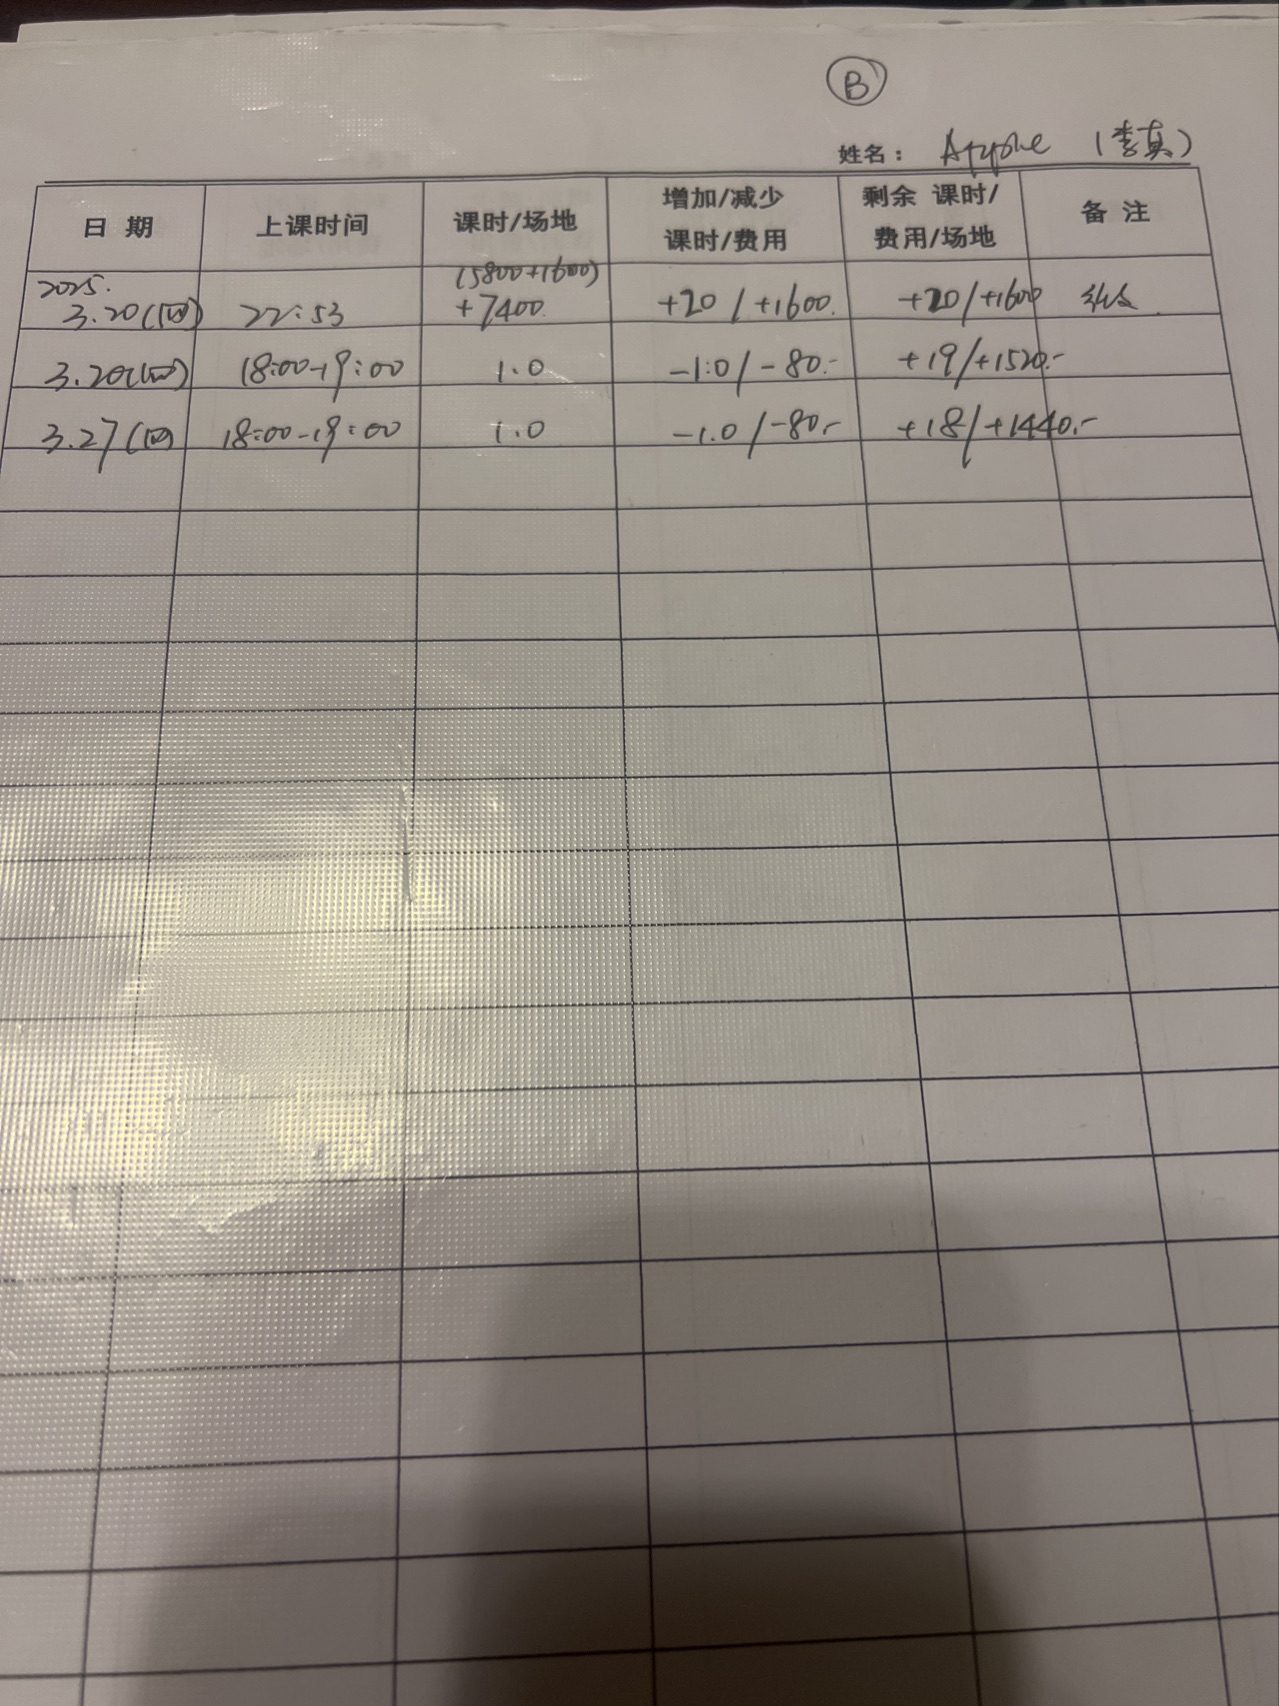 B
姓名： Apple （李真）
日 期 上课时间 课时/场地 增加/减少 课时/费用 剩余 课时/ 费用/场地 备 注
2025. (5800+1600)
3.20(四) 22:53 +7400. +20/+1600. +20/+1600
3.20(四) 18:00-19:00 1.0 -1.0/-80.- +19/+1520.-
3.27(四) 18:00-19:00 1.0 -1.0/-80.- +18/+1440.-